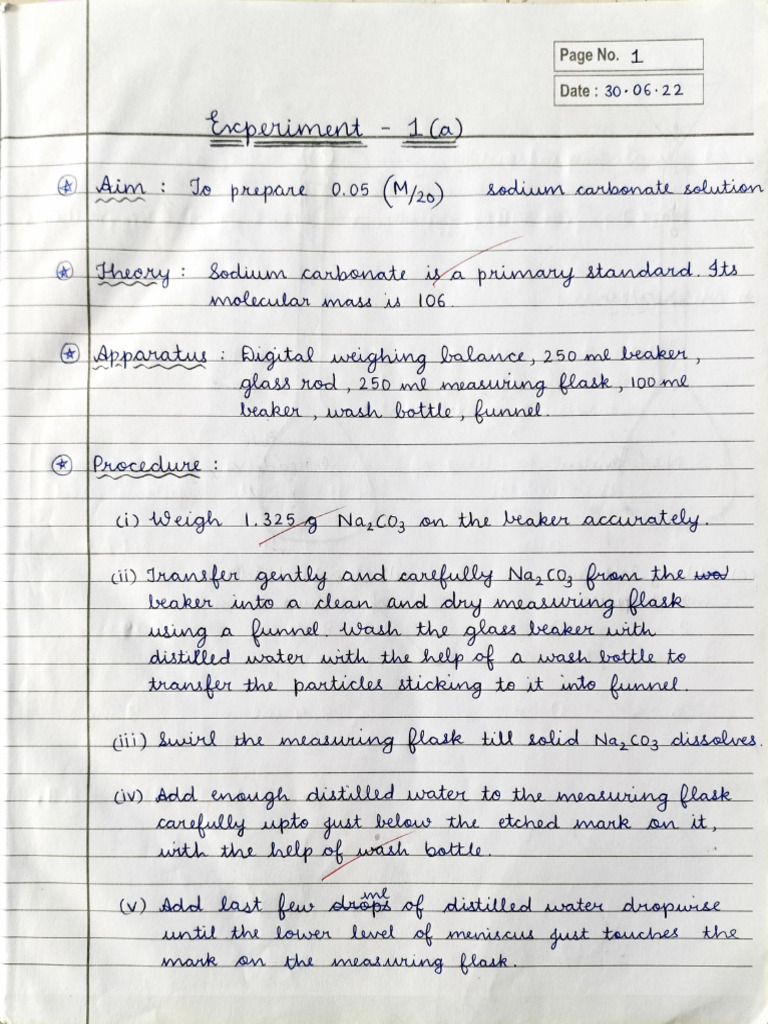 Page No. 1
Date : 30.06.22
Experiment - 1(a)
Aim : To prepare 0.05 (M/20) sodium carbonate solution
Theory : Sodium carbonate is a primary standard. Its
molecular mass is 106.
Apparatus : Digital weighing balance, 250 ml beaker,
glass rod, 250 ml measuring flask, 100 ml
beaker, wash bottle, funnel.
Procedure :
(i) Weigh 1.325 g Na₂CO₃ on the beaker accurately.
(ii) Transfer gently and carefully Na₂CO₃ from the
beaker into a clean and dry measuring flask
using a funnel. Wash the glass beaker with
distilled water with the help of a wash bottle to
transfer the particles sticking to it into funnel.
(iii) Swirl the measuring flask till solid Na₂CO₃ dissolves.
(iv) Add enough distilled water to the measuring flask
carefully upto just below the etched mark on it,
with the help of wash bottle.
(v) Add last few drops ml of distilled water dropwise
until the lower level of meniscus just touches the
mark on the measuring flask.